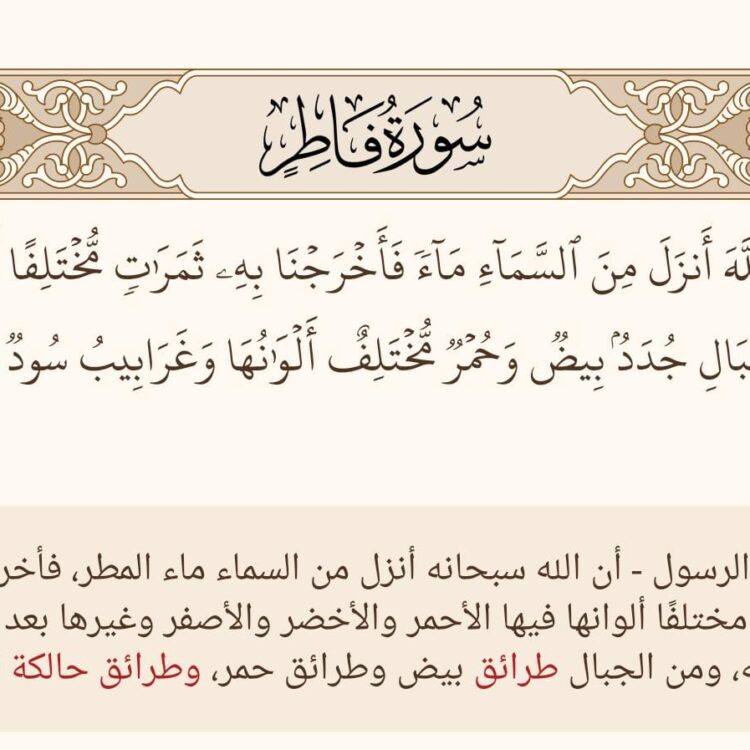 سُورَةُ فَاطِرٍ
أَنزَلَ مِنَ ٱلسَّمَآءِ مَآءٗ فَأَخۡرَجۡنَا بِهِۦ ثَمَرَٰتٖ مُّخۡتَلِفًا
جُدَدُۢ بِيضٞ وَحُمۡرٞ مُّخۡتَلِفٌ أَلۡوَٰنُهَا وَغَرَابِيبُ سُودٞ
الرسول - أن الله سبحانه أنزل من السماء ماء المطر، فأخر
مختلفًا ألوانها فيها الأحمر والأخضر والأصفر وغيرها بعد
ه، ومن الجبال طرائق بيض وطرائق حمر، وطرائق حالكة